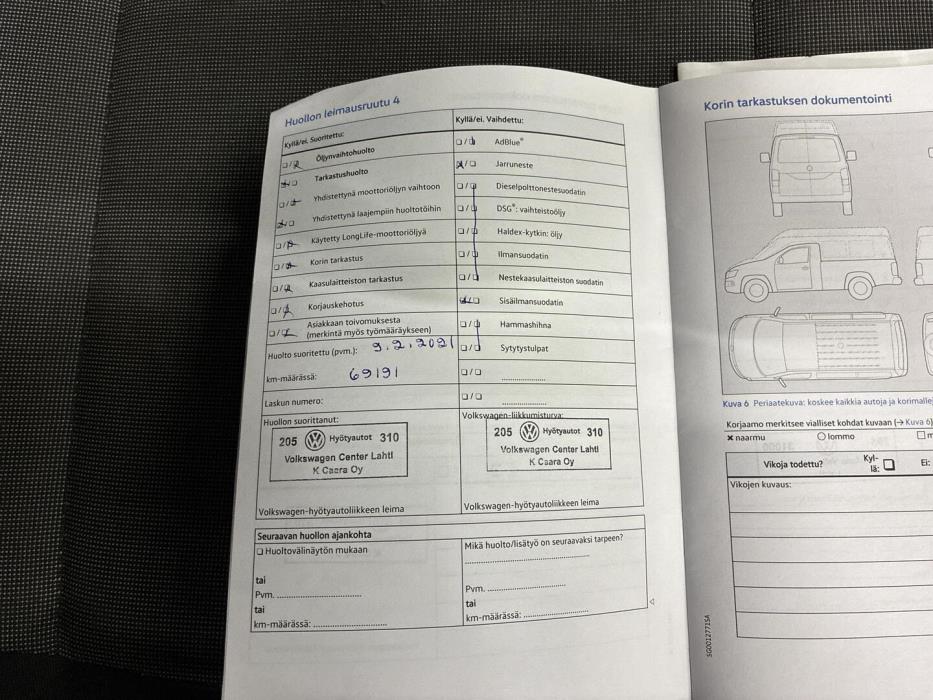 Huollon leimausruutu 4
Kyllä/ei. Suoritettu:
Öljynvaihtohuolto
Tarkastushuolto
Yhdistettynä moottoriöljyn vaihtoon
Yhdistettynä laajempiin huoltotöihin
Käytetty LongLife-moottoriöljyä
Korin tarkastus
Kaasulaitteiston tarkastus
Korjauskehotus
Asiakkaan toivomuksesta
(merkintä myös työmääräykseen)
Huolto suoritettu (pvm.): 9.2.2021
km-määrässä: 69191
Laskun numero:
Kyllä/ei. Vaihdettu:
AdBlue®
Jarruneste
Dieselpolttonestesuodatin
DSG®: vaihteistoöljy
Haldex-kytkin: öljy
Ilmansuodatin
Nestekaasulaitteiston suodatin
Sisäilmansuodatin
Hammashihna
Sytytystulpat
Huollon suorittanut:
205 Hyötyautot 310
Volkswagen Center Lahti
K Caara Oy
Volkswagen-hyötyautoliikkeen leima
Volkswagen-liikkumisturva:
205 Hyötyautot 310
Volkswagen Center Lahti
K Caara Oy
Volkswagen-hyötyautoliikkeen leima
Seuraavan huollon ajankohta
Huoltovälinäytön mukaan
tai
Pvm. ........................
tai
km-määrässä: ........................
Mikä huolto/lisätyö on seuraavaksi tarpeen?
Pvm. ........................
tai
km-määrässä: ........................
Korin tarkastuksen dokumentointi
Kuva 6 Periaatekuva: koskee kaikkia autoja ja korimallej
Korjaamo merkitsee vialliset kohdat kuvaan (→ Kuva 6)
x naarmu
lommo
Vikoja todettu?
Kyl-
lä:
Ei:
Vikojen kuvaus:
SG0012771SA